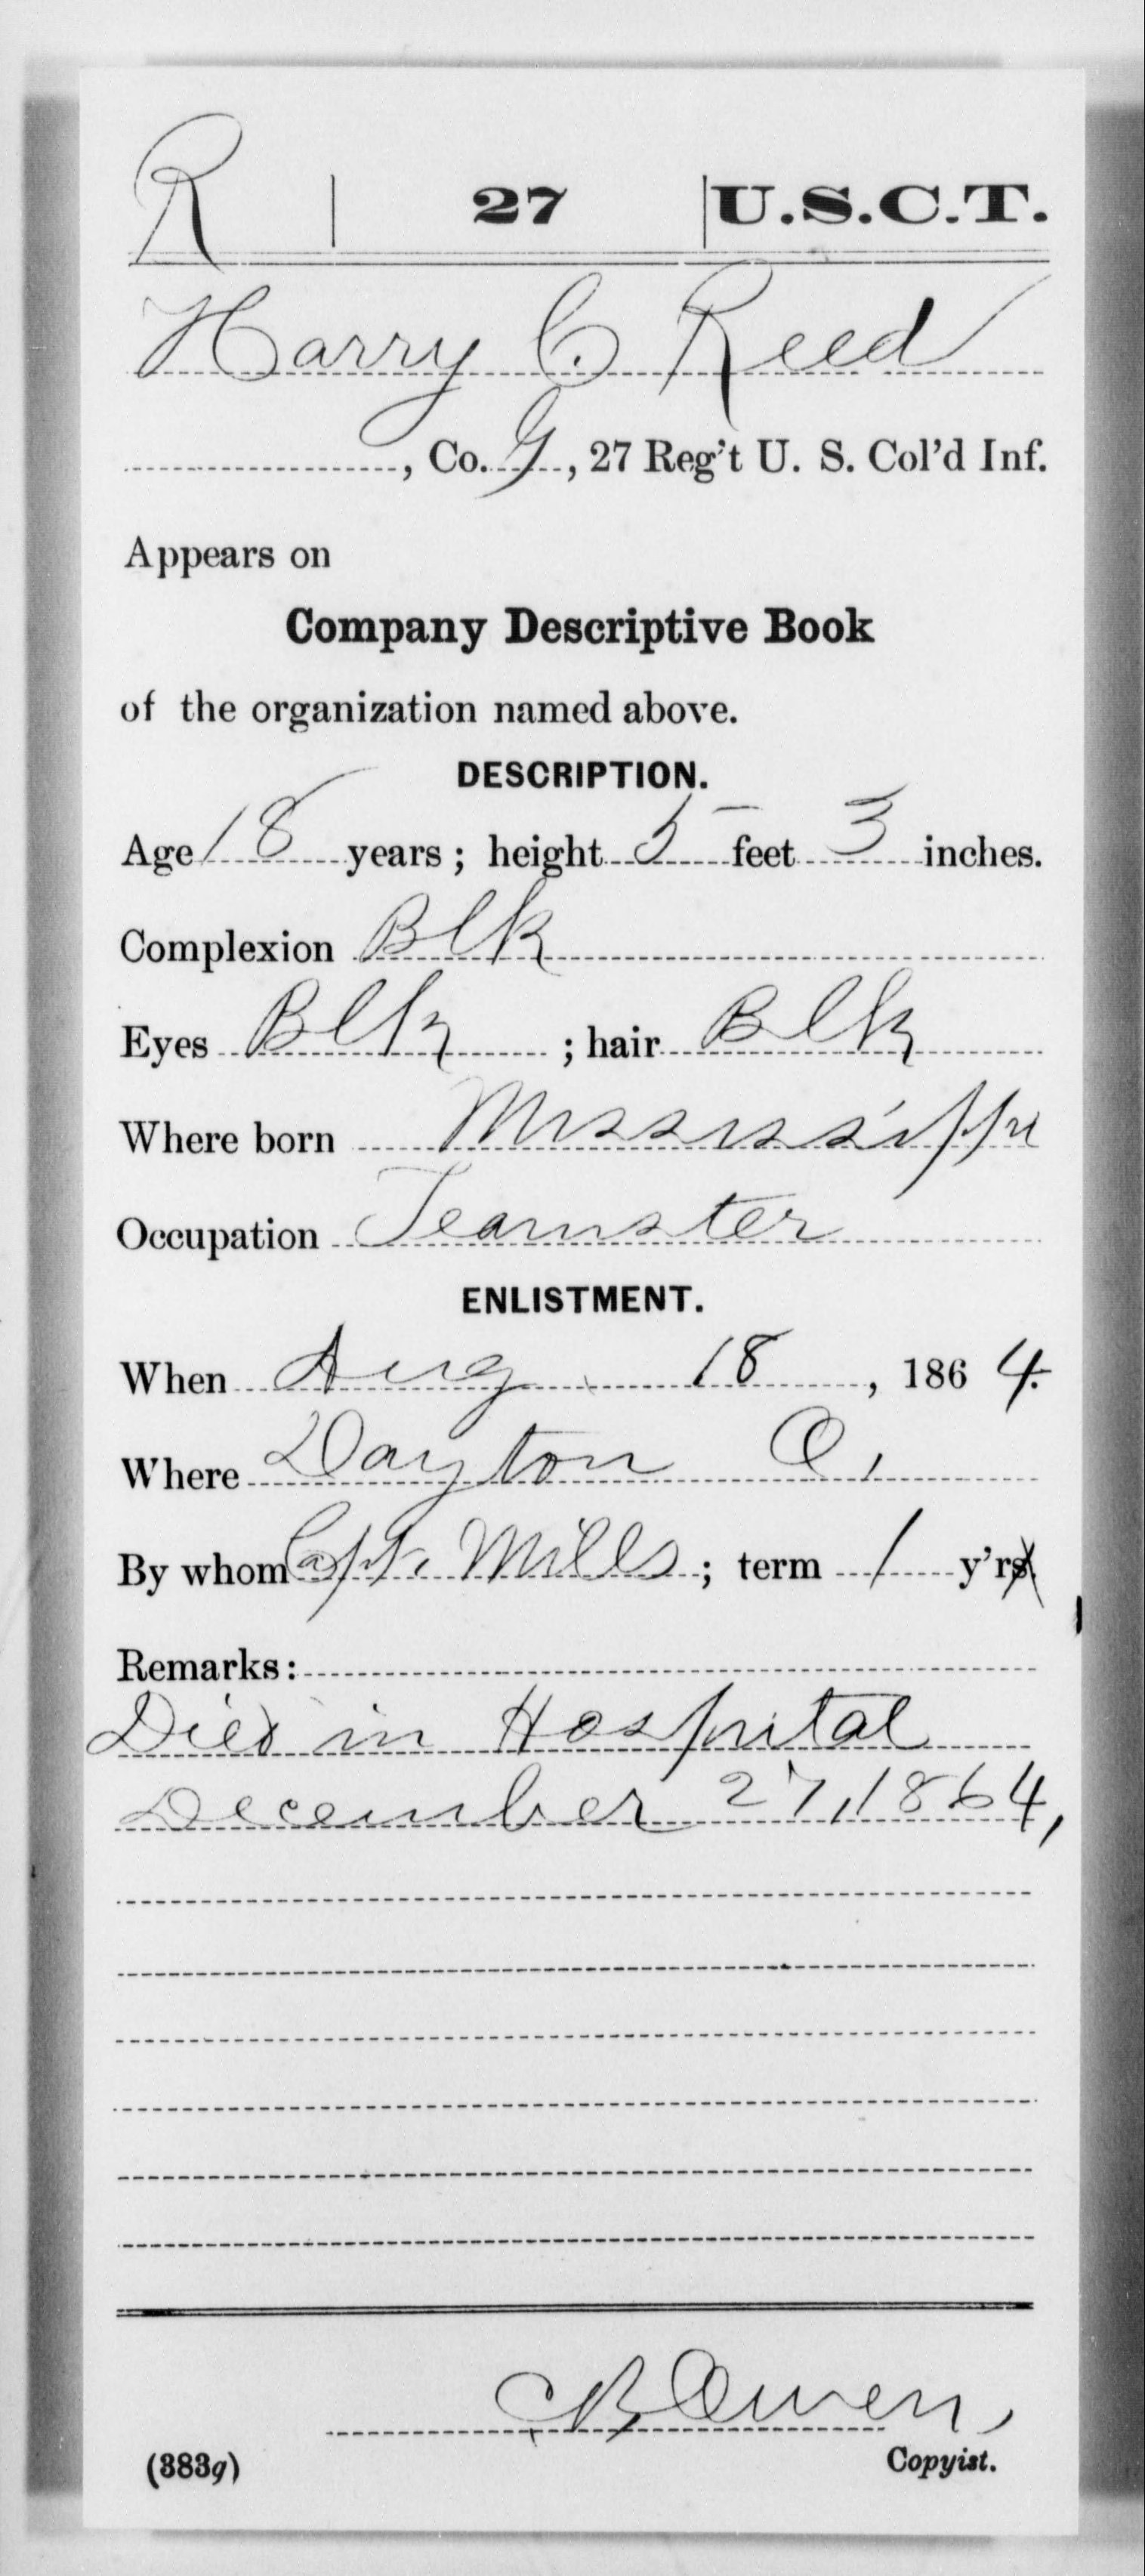 R 27 U.S.C.T.
Harry C. Reed
, Co. G, 27 Reg't U. S. Col'd Inf.
Appears on
Company Descriptive Book
of the organization named above.
DESCRIPTION.
Age 18 years; height 5 feet 3 inches.
Complexion Blk
Eyes Blk ; hair Blk
Where born Mississippi
Occupation Teamster
ENLISTMENT.
When Aug 18, 1864.
Where Dayton O,
By whom Capt. Mills; term 1 y'rs.
Remarks:
Died in Hospital
December 27, 1864,
CB Owen,
(383g) Copyist.